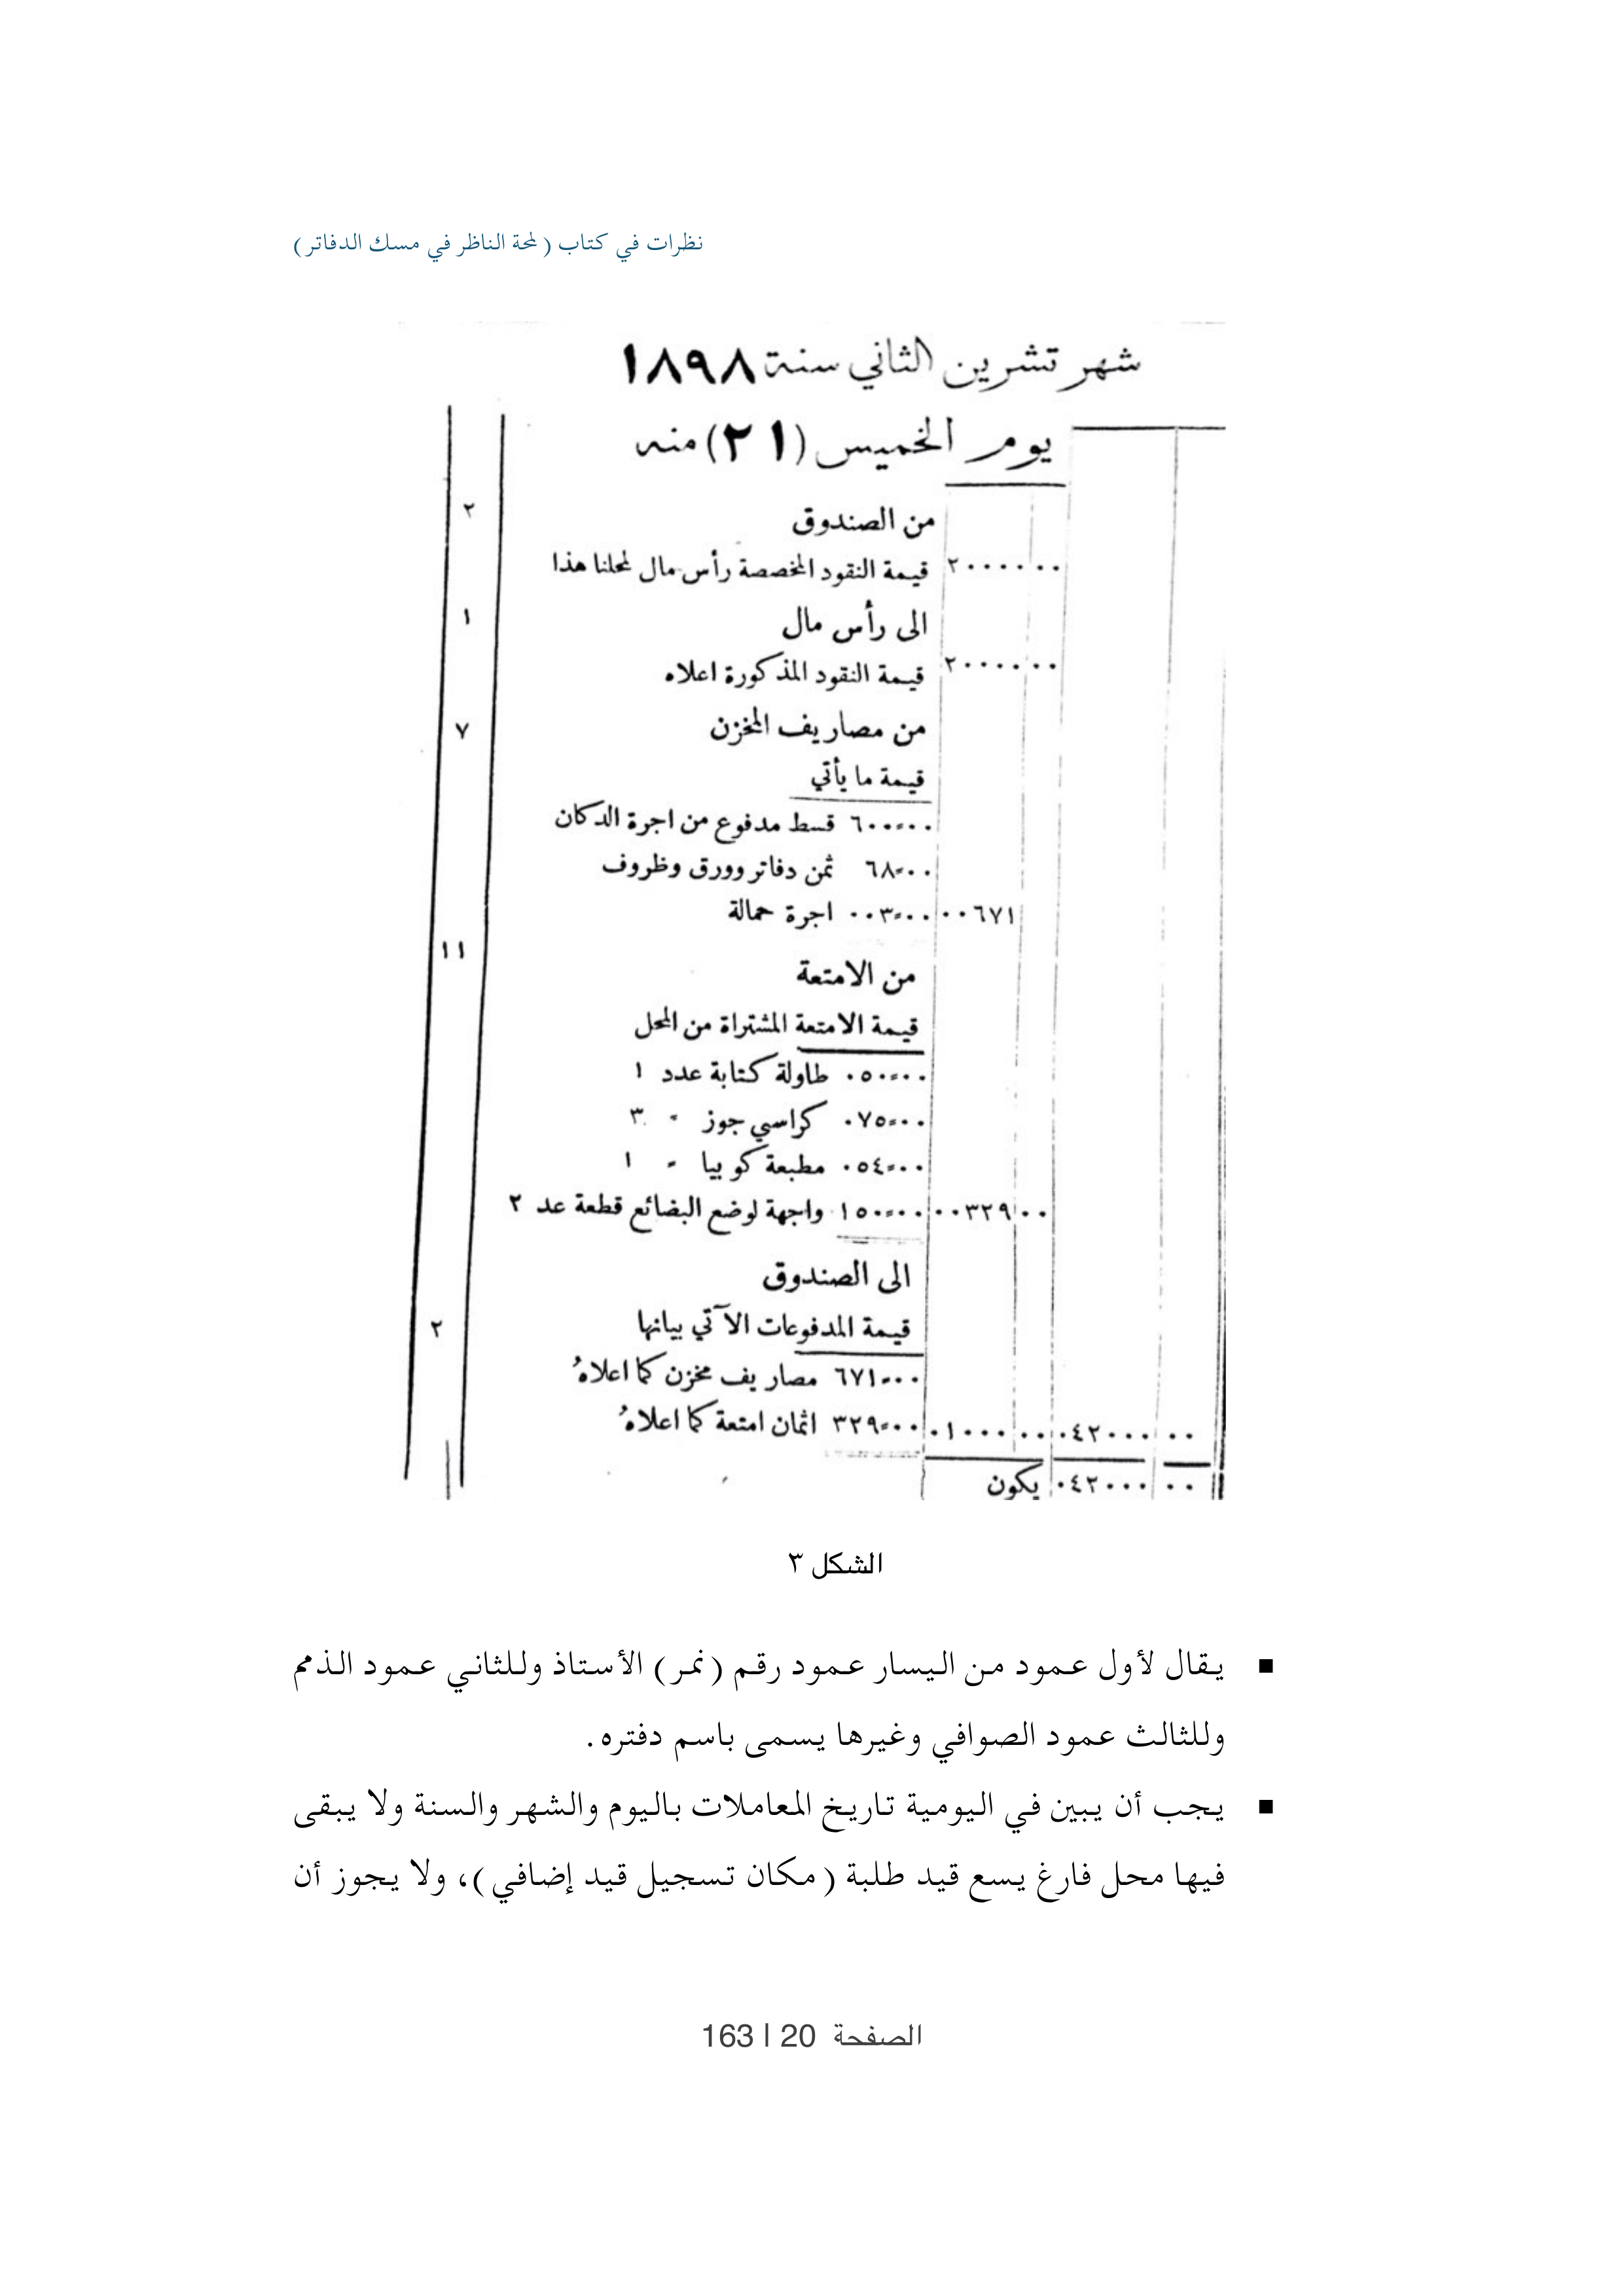 نظرات في كتاب (لمحة الناظر في مسك الدفاتر)
شهر تشرين الثاني سنة ١٨٩٨
يوم الخميس (٢١) منه
من الصندوق ٢
٢٠٠٠٠ ٠٠ قيمة النقود المخصصة رأس مال لمحلنا هذا
الى رأس مال ١
٢٠٠٠٠ ٠٠ قيمة النقود المذكورة اعلاه
من مصاريف المخزن ٧
قيمة ما يأتي
٦٠٠=٠٠ قسط مدفوع من اجرة الدكان
٦٨=٠٠ ثمن دفاتر وورق وظروف
٠٠٦٧١ ٠٠٣=٠٠ اجرة حمالة
١١
من الامتعة
قيمة الامتعة المشتراة من المحل
٠٥٠=٠٠ طاولة كتابة عدد ١
٠٧٥=٠٠ كراسي جوز = ٣
٠٥٤=٠٠ مطبعة كوبيا = ١
٠٠٣٢٩ ٠٠ ١٥٠=٠٠ واجهة لوضع البضائع قطعة عد ٢
الى الصندوق
قيمة المدفوعات الآتي بيانها ٢
٦٧١=٠٠ مصاريف مخزن كما اعلاهُ
٠٤٢٠٠٠ ٠٠ ٠١٠٠٠ ٠٠ ٣٢٩=٠٠ اثمان امتعة كما اعلاهُ
٠٤٢٠٠٠ ٠٠ يكون
الشكل ٣
▪ يقال لأول عمود من اليسار عمود رقم (نمر) الأستاذ وللثاني عمود الذمم
وللثالث عمود الصوافي وغيرها يسمى باسم دفتره.
▪ يجب أن يبين في اليومية تاريخ المعاملات باليوم والشهر والسنة ولا يبقى
فيها محل فارغ يسع قيد طلبة (مكان تسجيل قيد إضافي)، ولا يجوز أن
الصفحة 20 | 163